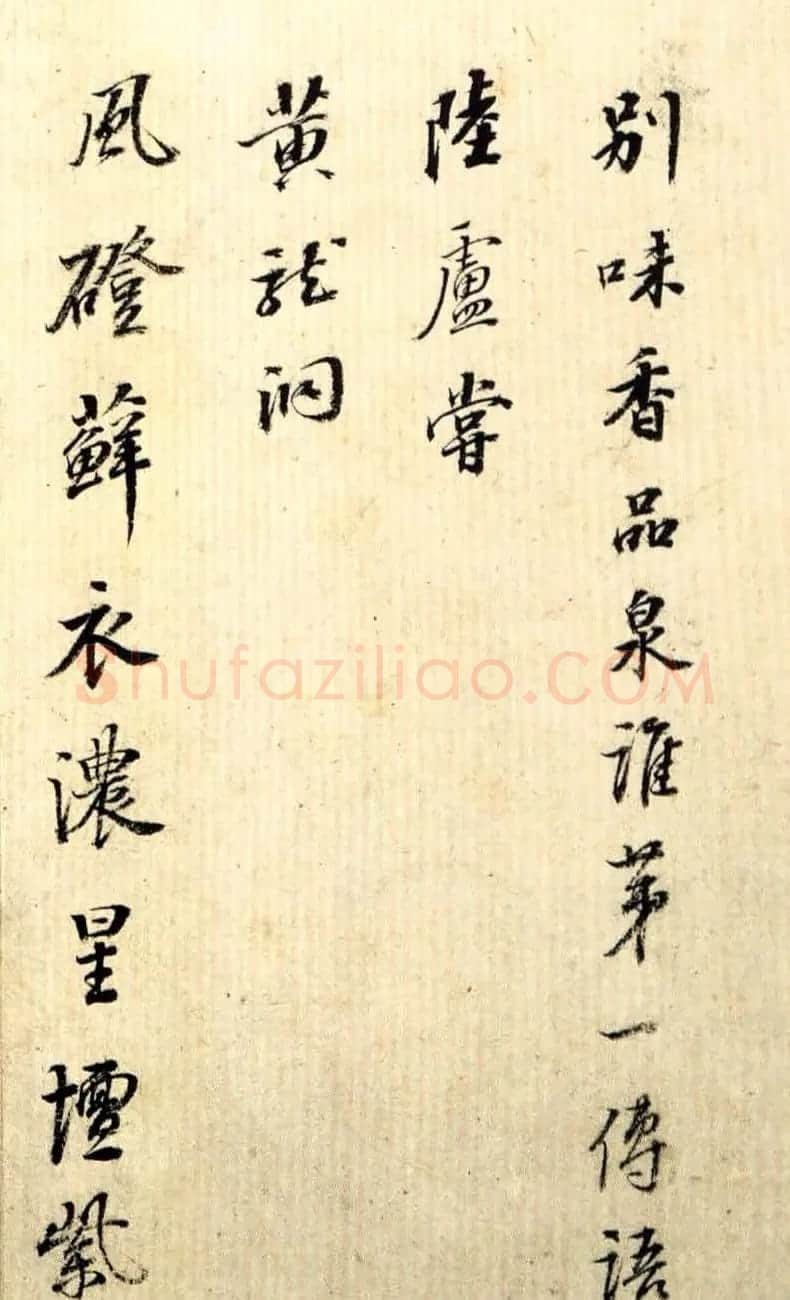 別味香品泉誰苐一傳語
陸盧嘗
黄龍洞
風磴蘚衣濃星壇紫
Shufaziliao.COM